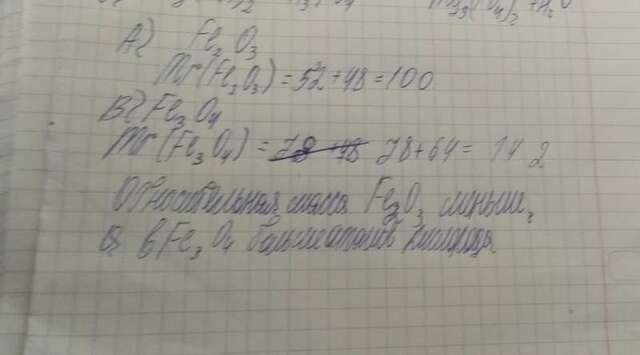 А) Fe₂O₃
Mr(Fe₂O₃)=52+48=100
В) Fe₃O₄
Mr(Fe₃O₄)= 78+64= 142
Относительная масса Fe₂O₃ меньше,
в Fe₃O₄ больше атомов кислорода